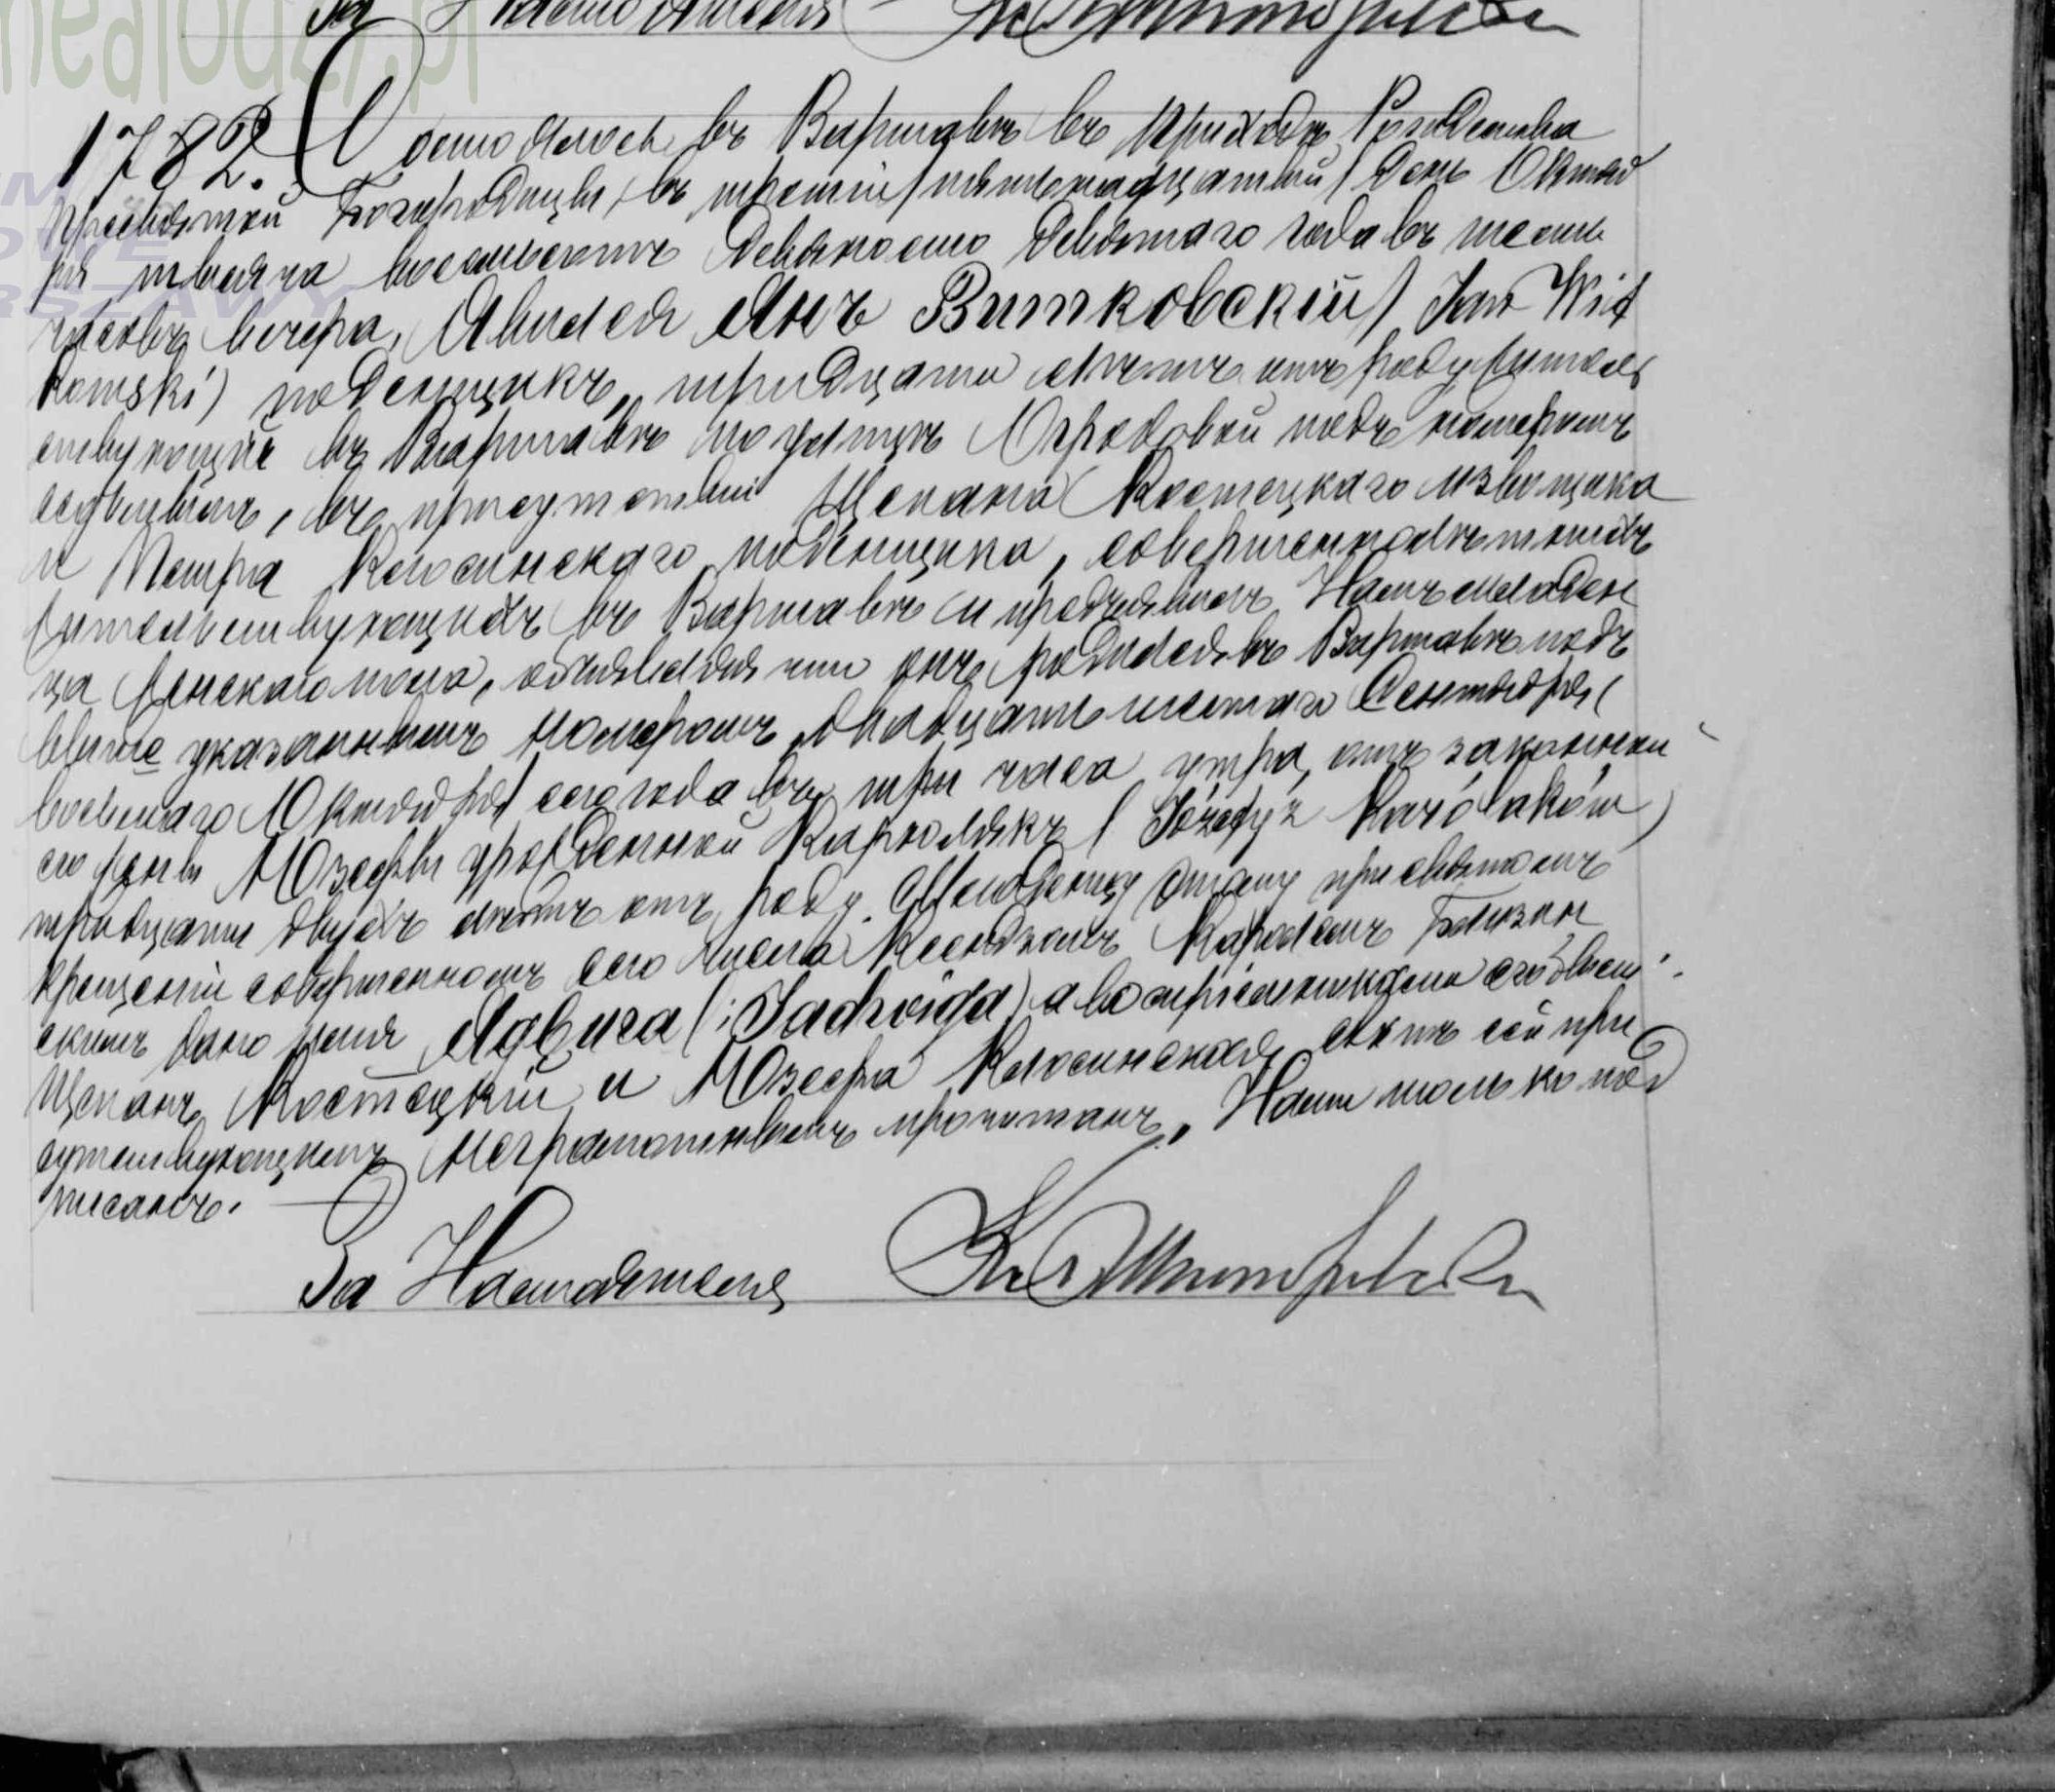 За Настоятеля
1782. Состоялось въ Варшавѣ въ приходѣ Рождества
Пресвятой Богородицы, въ третій /пятнадцатый/ день Октяб
ря тысяча восемьсотъ девяносто девятаго года въ шесть
часовъ вечера, Явился Янъ Витковскій / Jan Wit
kowski) поденщикъ, тридцати лѣтъ отъ роду, житель
ствующій въ Варшавѣ по улицѣ Огродовой подъ номеромъ
седьмымъ, въ присутствіи Щепана Костецкаго извощика
и Петра Колосинскаго поденщика, совершеннолѣтнихъ
жительствующихъ въ Варшавѣ и предъявилъ Намъ младен
ца женскаго пола, объявляя что онъ родился въ Варшавѣ подъ
выше указаннымъ номеромъ, двадцать шестаго Сентября (
восьмаго Октября) сего года въ три часа утра, отъ законной
его жены Юзефы урожденной Каролякъ ( Józefy z Karolaków )
тридцати двухъ лѣтъ отъ роду. Младенцу этому при святомъ
крещеніи совершенномъ сего числа Ксендзомъ Каролемъ Близин
скимъ дано имя Ядвига (:Jadwiga) а воспріемниками его были:
Щепанъ Костецкій и Юзефа Колосинская, Актъ сей при
сутствующимъ неграмотнымъ прочитанъ, Нами только под
писанъ.
За Настоятеля